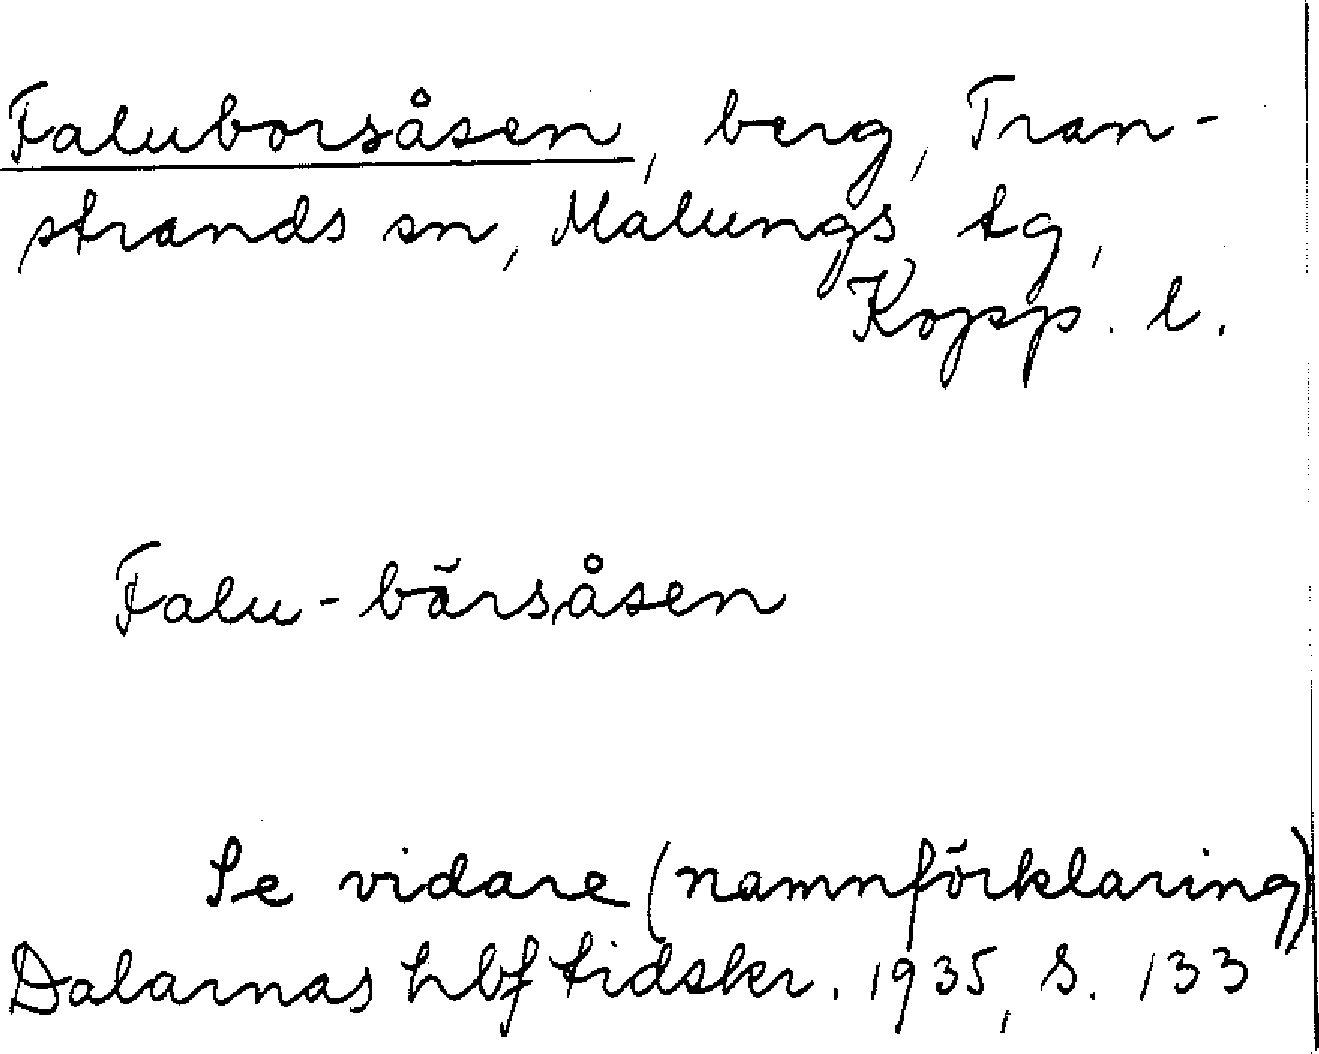 Faluborsåsen, berg, Tran-
strands sn, Malungs tg,
Kopp. l.
Falu-bärsåsen
Se vidare (namnförklaring)
Dalarnas hbf tidskr. 1935, s. 133